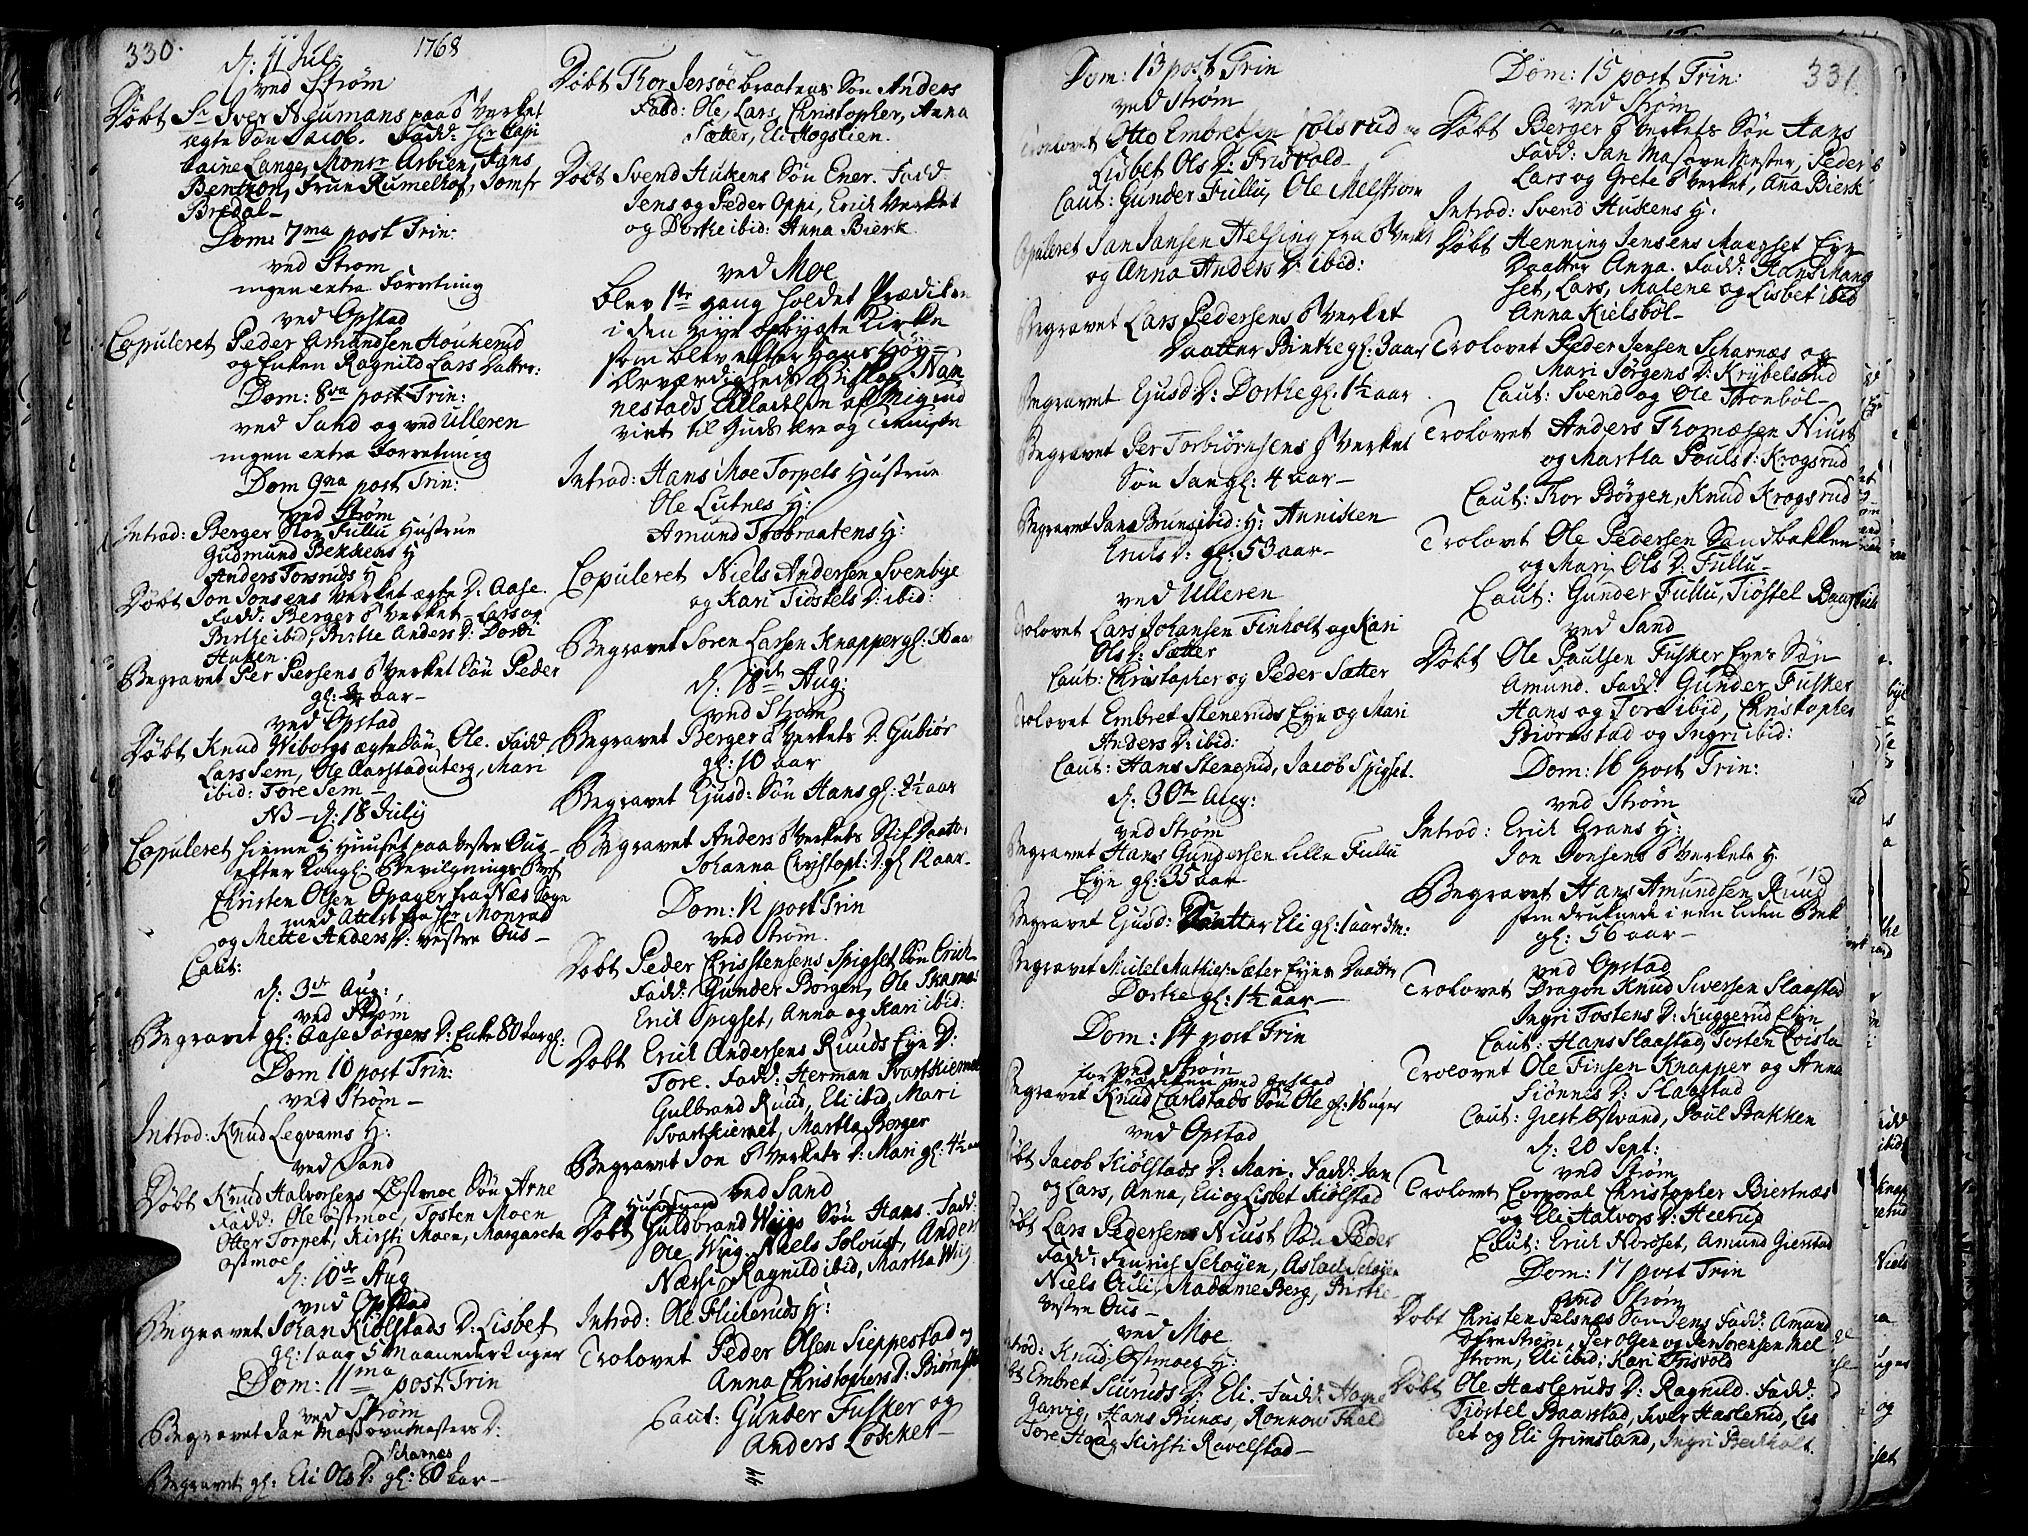 330.
1768
d: 11 Julij
ved Strøm
Døbt Sr Iver Neumans paa Verket
ægte Søn Jacob. Fadd: Hr Capi
taine Lange, Monsr Arbien, Hans
Bentzon, Frue Rumelhof, Jomfr
Bredal
Dom: 7ma post Trin:
ved Strøm
ingen extra Forretning
ved Opstad
Copuleret Peder Amundsen Houkerud
og Enken Ragnild Lars Datter:
Dom: 8va post Trin:
ved Sand og ved Ulleren
ingen extra Forretning
Dom 9na post Trin:
ved Strøm
Introd: Berger Stor Fullu Hustrue
Gudmund Bekkens H
Anders Torsruds H
Døbt Jon Jonsens Verket ægte D: Aase.
Fadd: Berger Verket Lars og
Birthe ibid, Birthe Anders D: Dorthe
Huken.
Begravet Per Persens Verket Søn Peder
gl: aar
ved Opstad
Døbt Knud Wiborgs ægte Søn Ole. Fadd
Lars Sem, Ole Aarstad uterg, Mari
ibid: Tore Sem
NB d: 18 Julij
Copuleret hieme i Huuset paa Vestre Ous
efter Kongl: Bevilgnings Bref
Christen Olsen Opager fra Næs Sogn
med Attest fra Hr Monrad
og Mette Anders D: Vestre Ous
Caut:
d: 3de Aug:
ved Strøm
Begravet gl: Aase Jørgens D: Enke 80 Aar gl:
Dom 10 post Trin:
ved Strøm
Introd: Knud Legvams H:
ved Sand
Døbt Knud Halvorsens Østmoe Søn Arne
Fadd: Ole Østmoe, Tosten Moen
Otter Torpet, Kirsti Moen, Margareta
Ostmoe
d: 10de Aug
ved Opstad
Begravet Johan Kiølstads D: Lisbet
gl: 1 aar 5 Maaneder 2 uger
Dom: 11ma post Trin
ved Strøm
Begravet Jan Masovnmesters D:
Begravet gl: Eli Ols D: Scharnæs gl: 80 Aar
Døbt Thor Jersøebraatens Søn Anders
Fadd: Ole, Lars, Christopher, Anna
Sætter, Eli Hogstien.
Døbt Svend Hukens Søn Ener. Fadd
Jens og Peder Oppi, Erich Verket
og Dorthe ibid: Anna Bierk
ved Moe
blev 1te gang holdet Prædiken
i den nye opbygte Kirke
som blev efter Hans Høy=
ærværdigheds Biskop Nan
nestads Tilladelse af Mig ind
viet til Guds ære og Tieniste
Introd: Hans Moe Torpets Hustrue
Ole Lutnes H:
Amund Trobraatens H:
Copuleret Niels Andersen Svenbye
og Kari Tiøstels D: ibid:
Begravet Soren Larsen Knapper gl: aar
d: 18de Aug:
ved Strøm
Begravet Berger Verkets D: Gubiør
gl: 10 aar
Begravet Ejusd: Søn Hans gl: 2½ aar
Begravet Anders Verkets Stif Daatter
Johanna Christoph: D: gl 12 aar
Dom: 12 post Trin
ved Strøm.
Døbt Peder Christensens Spigset Søn Erich
Fadd: Gunder Børgen, Ole Skarnæs
Erich Spigset, Anna og Kari ibid:
Døbt Erich Andersens Ruuds Eje D:
Tore. Fadd: Herman Svartkiernet
Gulbrand Ruud, Eli ibid, Mari
Svartkiernet, Martha Børger
Begravet Jon Verkets D: Mari gl: 4½ aar
ved Sand
Døbt Huusmand Guldbrand Wiigs Søn Hans. Fadd:
Ole Wiig, Niels Solbust, Anders
Næss, Ragnild ibid, Martha Wiig
Introd: Ole Flikeruds H:
Trolovet Peder Olsen Sieppestad og
Anna Christophers D: Biørnstad
Caut: Gunder Fusker og
Anders Løkker
331.
Dom: 13 post Trin
ved Strøm
Trolovet Otto Embretsen Tolsrud og
Lisbet Ols D: Frisvold
Caut: Gunder Fullu, Ole Melstrøm
Copuleret Jan Jansen Helsing fra Verket
og Anna Anders D: ibid:
Begravet Lars Pedersens Verket
Daatter Birthe gl: 3 aar
Begravet Ejusd D: Dorthe gl: 1½ aar
Begravet Per Torbiørnsens Verket
Søn Jan gl: 4 aar
Begravet Jan Bruns ibid: H: Anniken
Erichs D: gl: 53 aar
ved Ulleren
Trolovet Lars Johansen Finholt og Kari
Ols D: Sætter
Caut: Christopher og Peder Sætter
Trolovet Embret Steneruds Eye og Mari
Anders D: ibid:
Caut: Hans Stenerud, Jacob Spigset.
d: 30te Aug:
ved Strøm
Begravet Hans Gundersen lille Fullu
Eye gl: 35 aar
Begravet Ejusd: Daatter Eli gl: 1 aar 3 m:
Begravet Mikel Mathies: Sæter Eyes Daatter
Dorthe gl: 1½ aar
Dom: 14 post Trin
ved Strøm
for Prædiken ved Opstad
Begravet Knud Carlstads Søn Ole gl: 16 uger
ved Opstad
Døbt Jacob Kiølstads D: Mari. Fadd: Jan
og Lars, Anna, Eli og Lisbet Kiølstad
Døbt Lars Pedersens Niust Søn Peder
Fadd: Henrich Schøyen, Aslach Schøyen
Niels Auli, Madame Berg, Birthe
Vestre Ous
ved Moe
Introd: Knud Ostmoes H:
Døbt Embret Sluruds D: Eli. Fadd: Hagen
Garvig, Hans Bunæs, Ronnow Thald
Tore Haag Kirsti Ravelstad
Dom: 15 post Trin:
ved Strøm
Døbt Berger Verkets Søn Hans
Fadd: Jan Masovnmester, Peder
Lars og Grete Verket, Ana Bierk
Introd: Svend Hukens H:
Døbt Henning Jensens Mangset Eye
Daatter Anna. Fadd: Hans Mang
set, Lars, Malene og Lisbet ibid
Anna Kielsbøl
Trolovet Peder Jensen Scharnæs og
Mari Jørgens D: Krybelsrud
Caut: Svend og Ole Tronbøl
Trolovet Anders Thomæsen Niust
og Martha Pouls D: Krogsrud
Caut: Thor Børgen, Knud Krogsrud
Trolovet Ole Pedersen Sandbakken
og Mari Ols D: Fullu
Caut: Gunder Fullu, Tiøstel Baarstad
ved Sand
Døbt Ole Paulsen Fusker Eyes Søn
Amund. Fadd: Gunder Fusker
Hans og Tore ibid, Christopher
Biørnstad og Ingri ibid:
Dom: 16 post Trin:
ved Strøm
Introd: Erich Grans H:
Jon Jonsens Verkets H.
Begravet Hans Amundsen Ruud
som druknede i een liden Bek
gl: 56 aar
ved Opstad
Trolovet Dragon Knud Siversen Slaastad
Ingri Tostens D: Kuggerud Eye
Caut: Hans Slaastad, Tosten
Trolovet Ole Finsen Knapper og Anna
Siønnes D: Slaastad
Caut: Giest Østvand, Poul Bakken
d: 20 Sept:
ved Strøm
Trolovet Corporal Christopher Biertnæs
og Eli Halvors D: Heerud
Caut: Erich Norset, Amund Gierstad
Dom: 17 post Trin
ved Strøm
Døbt Christen Pelsnæs Søn Jens Fadd: Amund
Defrestrøm, Per Olsen og Per Sørensen Mel
strøm, Eli ibid: Kari Frisvold
Døbt Ole Hasleruds D: Ragnild. Fadd:
Tiøstel Baarstad, Iver Haslerud, Lis
bet og Eli Grimsland, Ingri